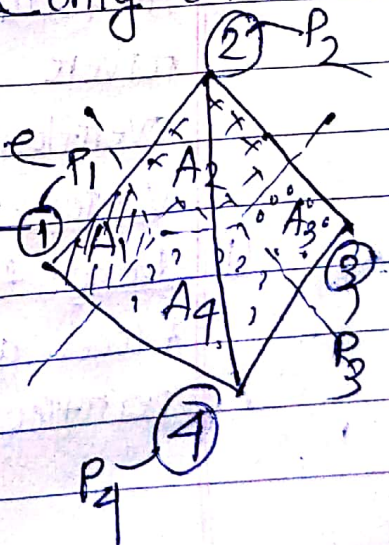 ② P₂
e P₁
① A₁ A₂ A₃ ③
A₄ P₃
④
P₄